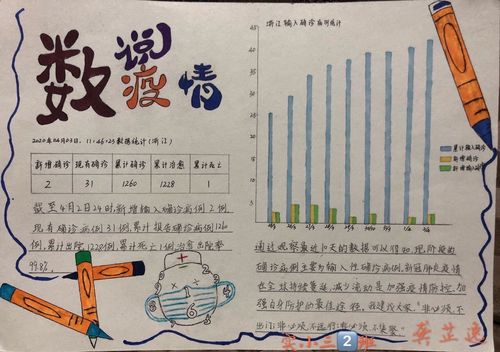 数说疫情
2020年04月03日,11:46:23数据统计(浙江)
新增确诊 现有确诊 累计确诊 累计治愈 累计死亡
2 31 1260 1228 1
截至4月2日24时,新增输入确诊病例2例,
现有确诊病例31例,累计报告确诊病例1260
例,累计出院1228例,累计死亡1例,治愈出院率
99.8%。
浙江输入确诊病例统计
45
40
35
30
25
20
15
10
5
0
累计输入确诊
新增确诊
新增输入确诊
通过观察最近10天的数据可以得知,现阶段的
确诊病例主要为输入性确诊病例,新冠肺炎疫情
也在全球持续蔓延,减少流动是加强疫情防控,加
强自身防护的最佳途径,我建议大家:"非必须,不
出门;非必须,不远行;非必须,不集聚。"
实小三2班 龚芷逸